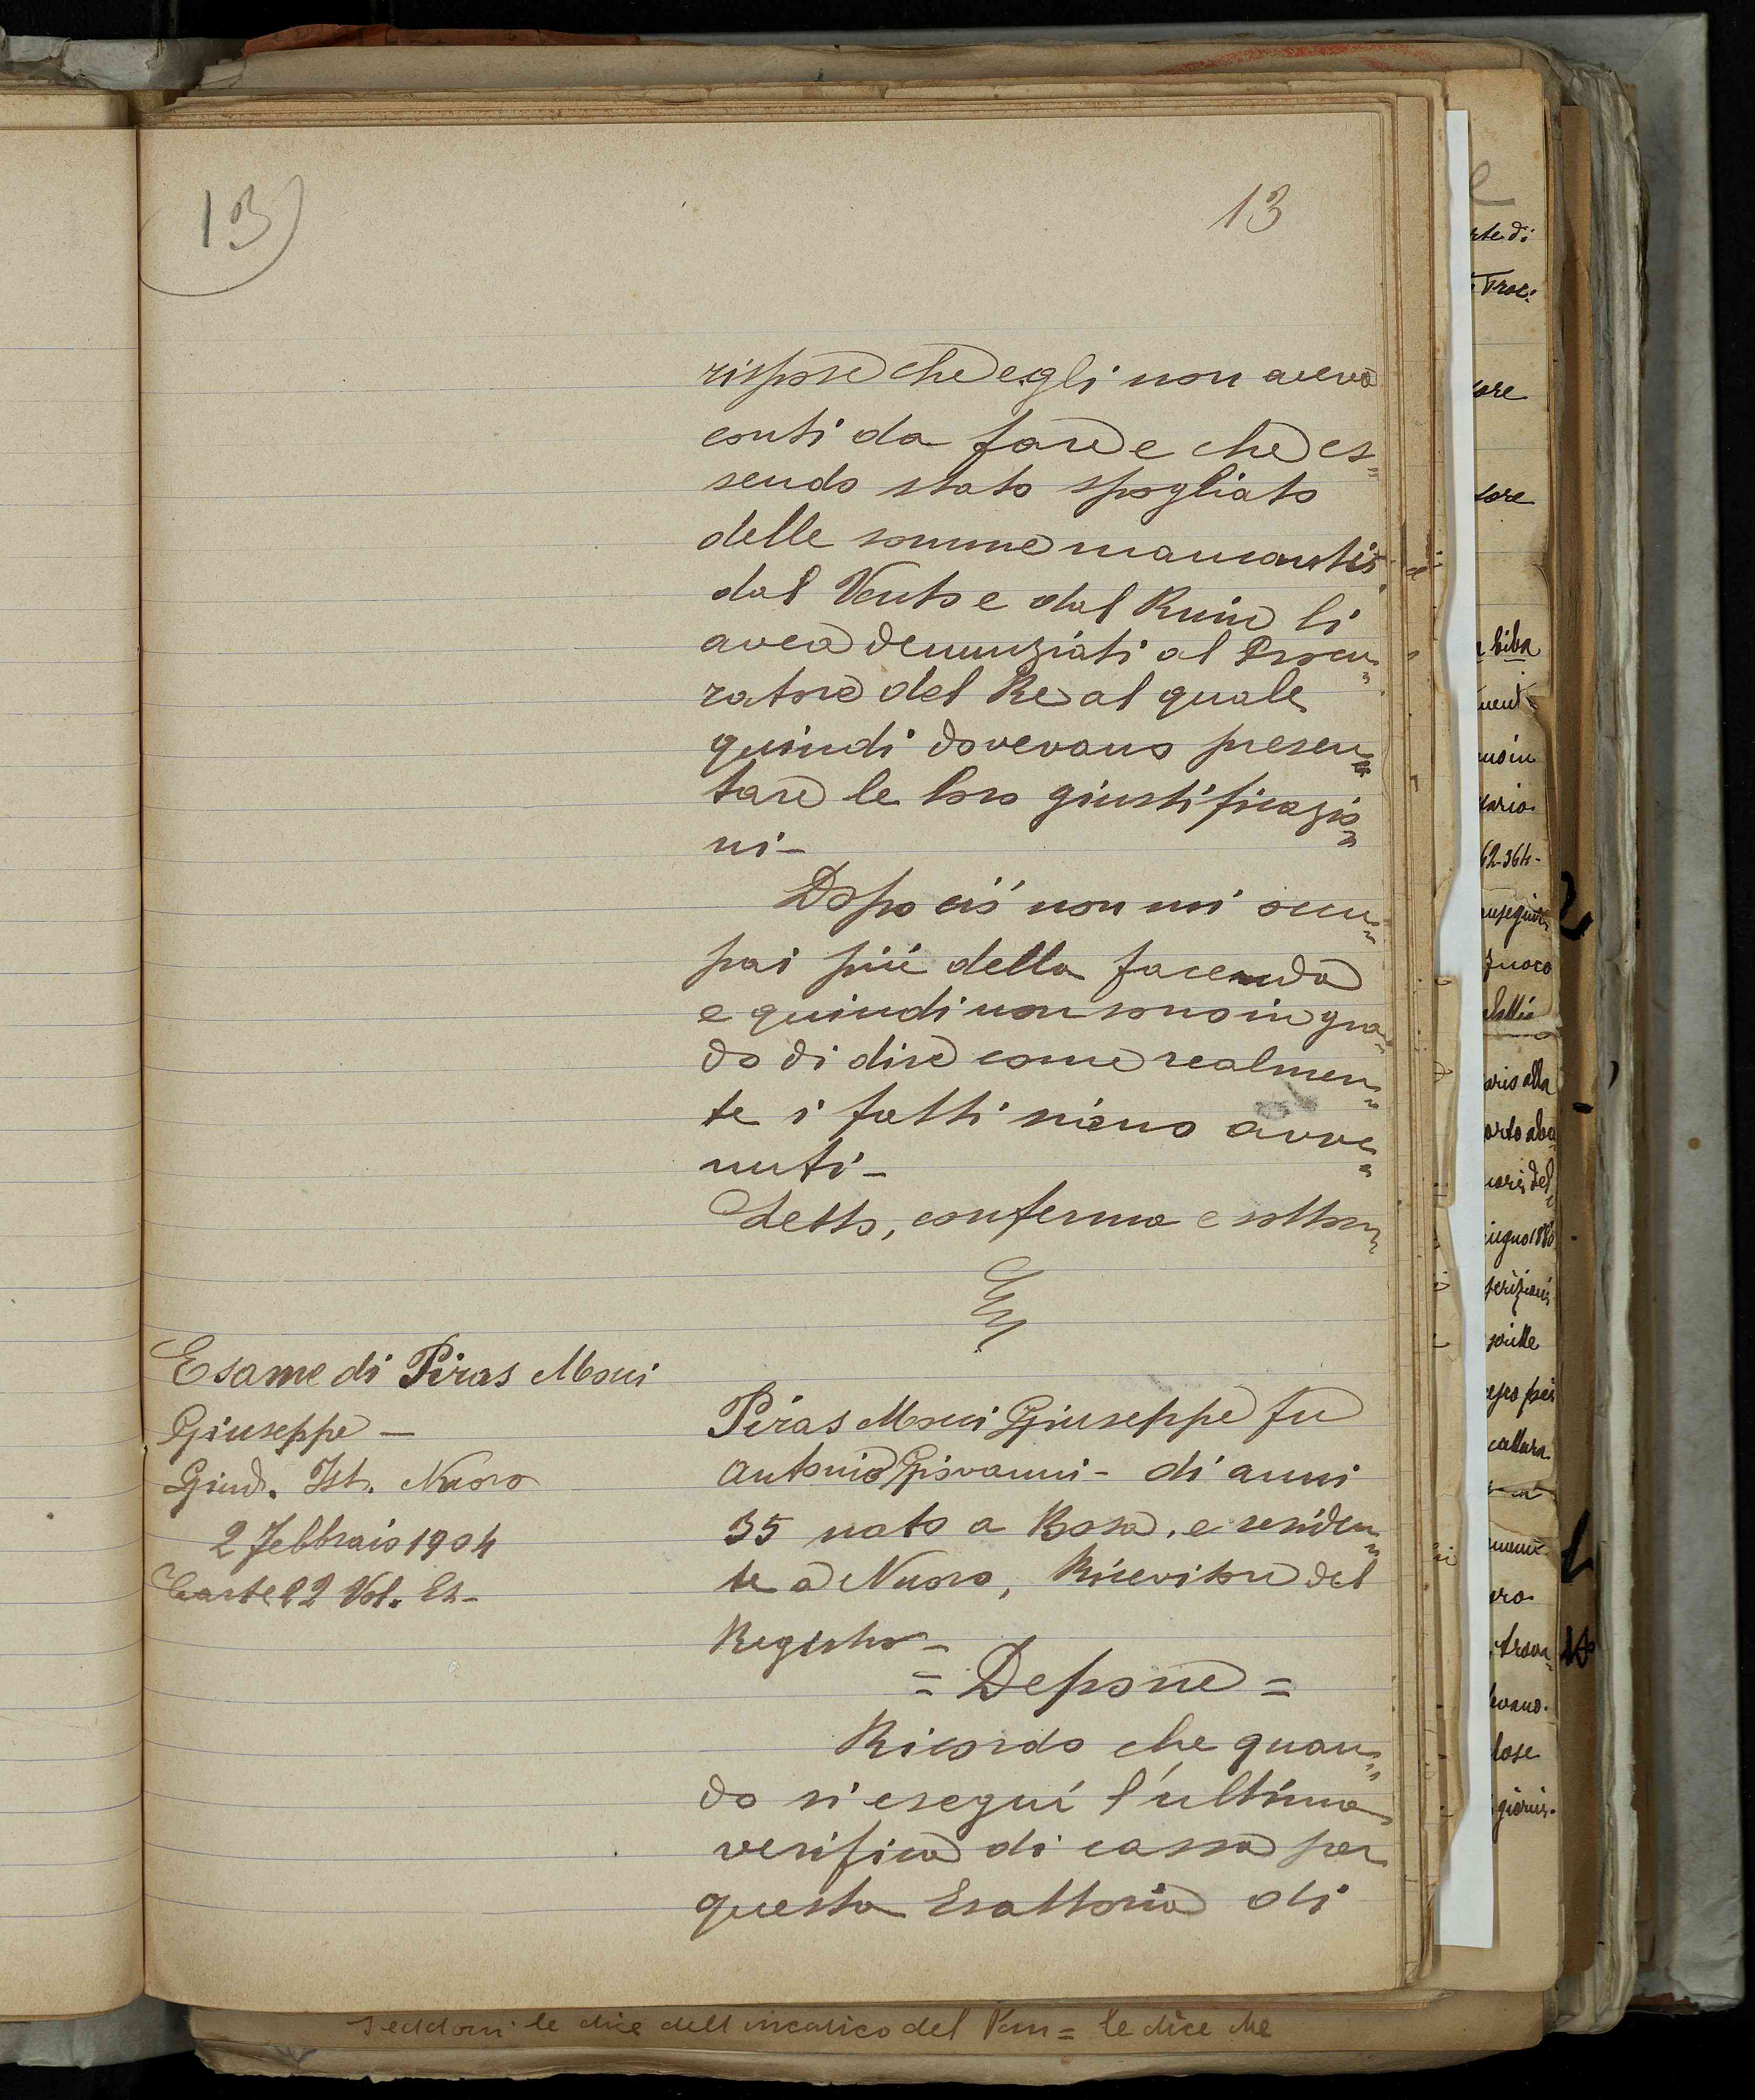 13)
13
rispose che egli non aveva
conti da fare e che es=
sendo stato spogliato
delle somme mancanti
dal Vento e dal Ruiu li
avea denunziati al Procu=
ratore del Re al quale
quindi dovevano presen=
tare le loro giustificazio=
ni-
Dopo ciò non mi occu=
pai più della facenda
e quindi non sono in gra=
do di dire come realmen=
te i fatti siano avve=
nuti-
Letto, conferma e sottos=
Esame di Piras Moni
Giuseppe-
Giud. Ist. Nuoro
2 Febbraio 1904
Carte 22 Vol. Es-
Piras Moni Giuseppe fu
Antonio Giovanni- di anni
35 nato a Bosa, e residen=
te a Nuoro, Ricevitore del
Registro-
= Depone =
Ricordo che quan=
do si eseguì l'ultima
verifica di cassa per
questa Esattoria di
le dice dell incarico del = le dice che
rte di
sore
sore
ario.
62-364-
fuoco
aris alla
giugno 1880
callara
lose
giorni-